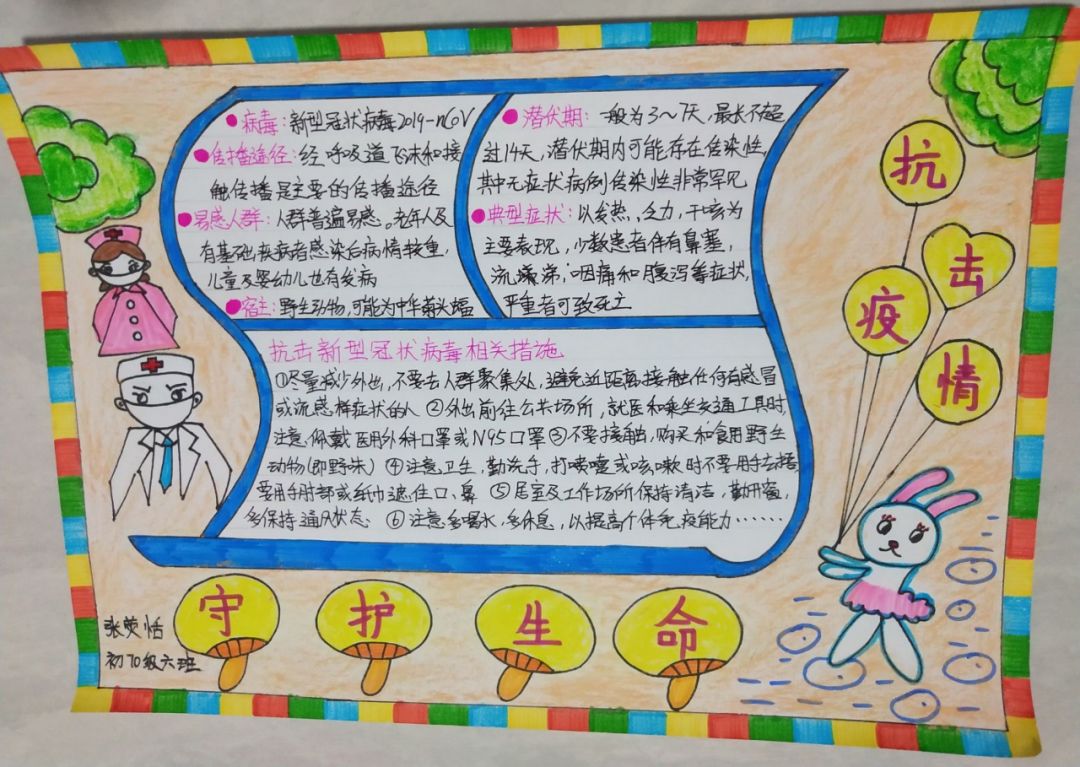 ●病毒：新型冠状病毒2019-nCoV
●传播途径：经呼吸道飞沫和接
触传播是主要的传播途径
●易感人群：人群普遍易感。老年人及
有基础疾病者感染后病情较重，
儿童及婴幼儿也有发病
●宿主：野生动物，可能为中华菊头蝠
●潜伏期：一般为3～7天，最长不超
过14天，潜伏期内可能存在传染性，
其中无症状病例传染性非常罕见
●典型症状：以发热、乏力、干咳为
主要表现，少数患者伴有鼻塞，
流涕，咽痛和腹泻等症状，
严重者可致死亡
抗击新型冠状病毒相关措施
①尽量减少外出，不要去人群聚集处，避免近距离接触任何有感冒
或流感样症状的人 ②外出前往公共场所，就医和乘坐交通工具时，
注意佩戴医用外科口罩或N95口罩 ③不要接触，购买和食用野生
动物（即野味） ④注意卫生，勤洗手，打喷嚏或咳嗽时不要用手去捂
要用手肘部或纸巾遮住口、鼻 ⑤居室及工作场所保持清洁，勤开窗，
多保持通风状态 ⑥注意多喝水，多休息，以提高个体免疫能力……
抗
击
疫
情
守护生命
张荧恬
初70级六班